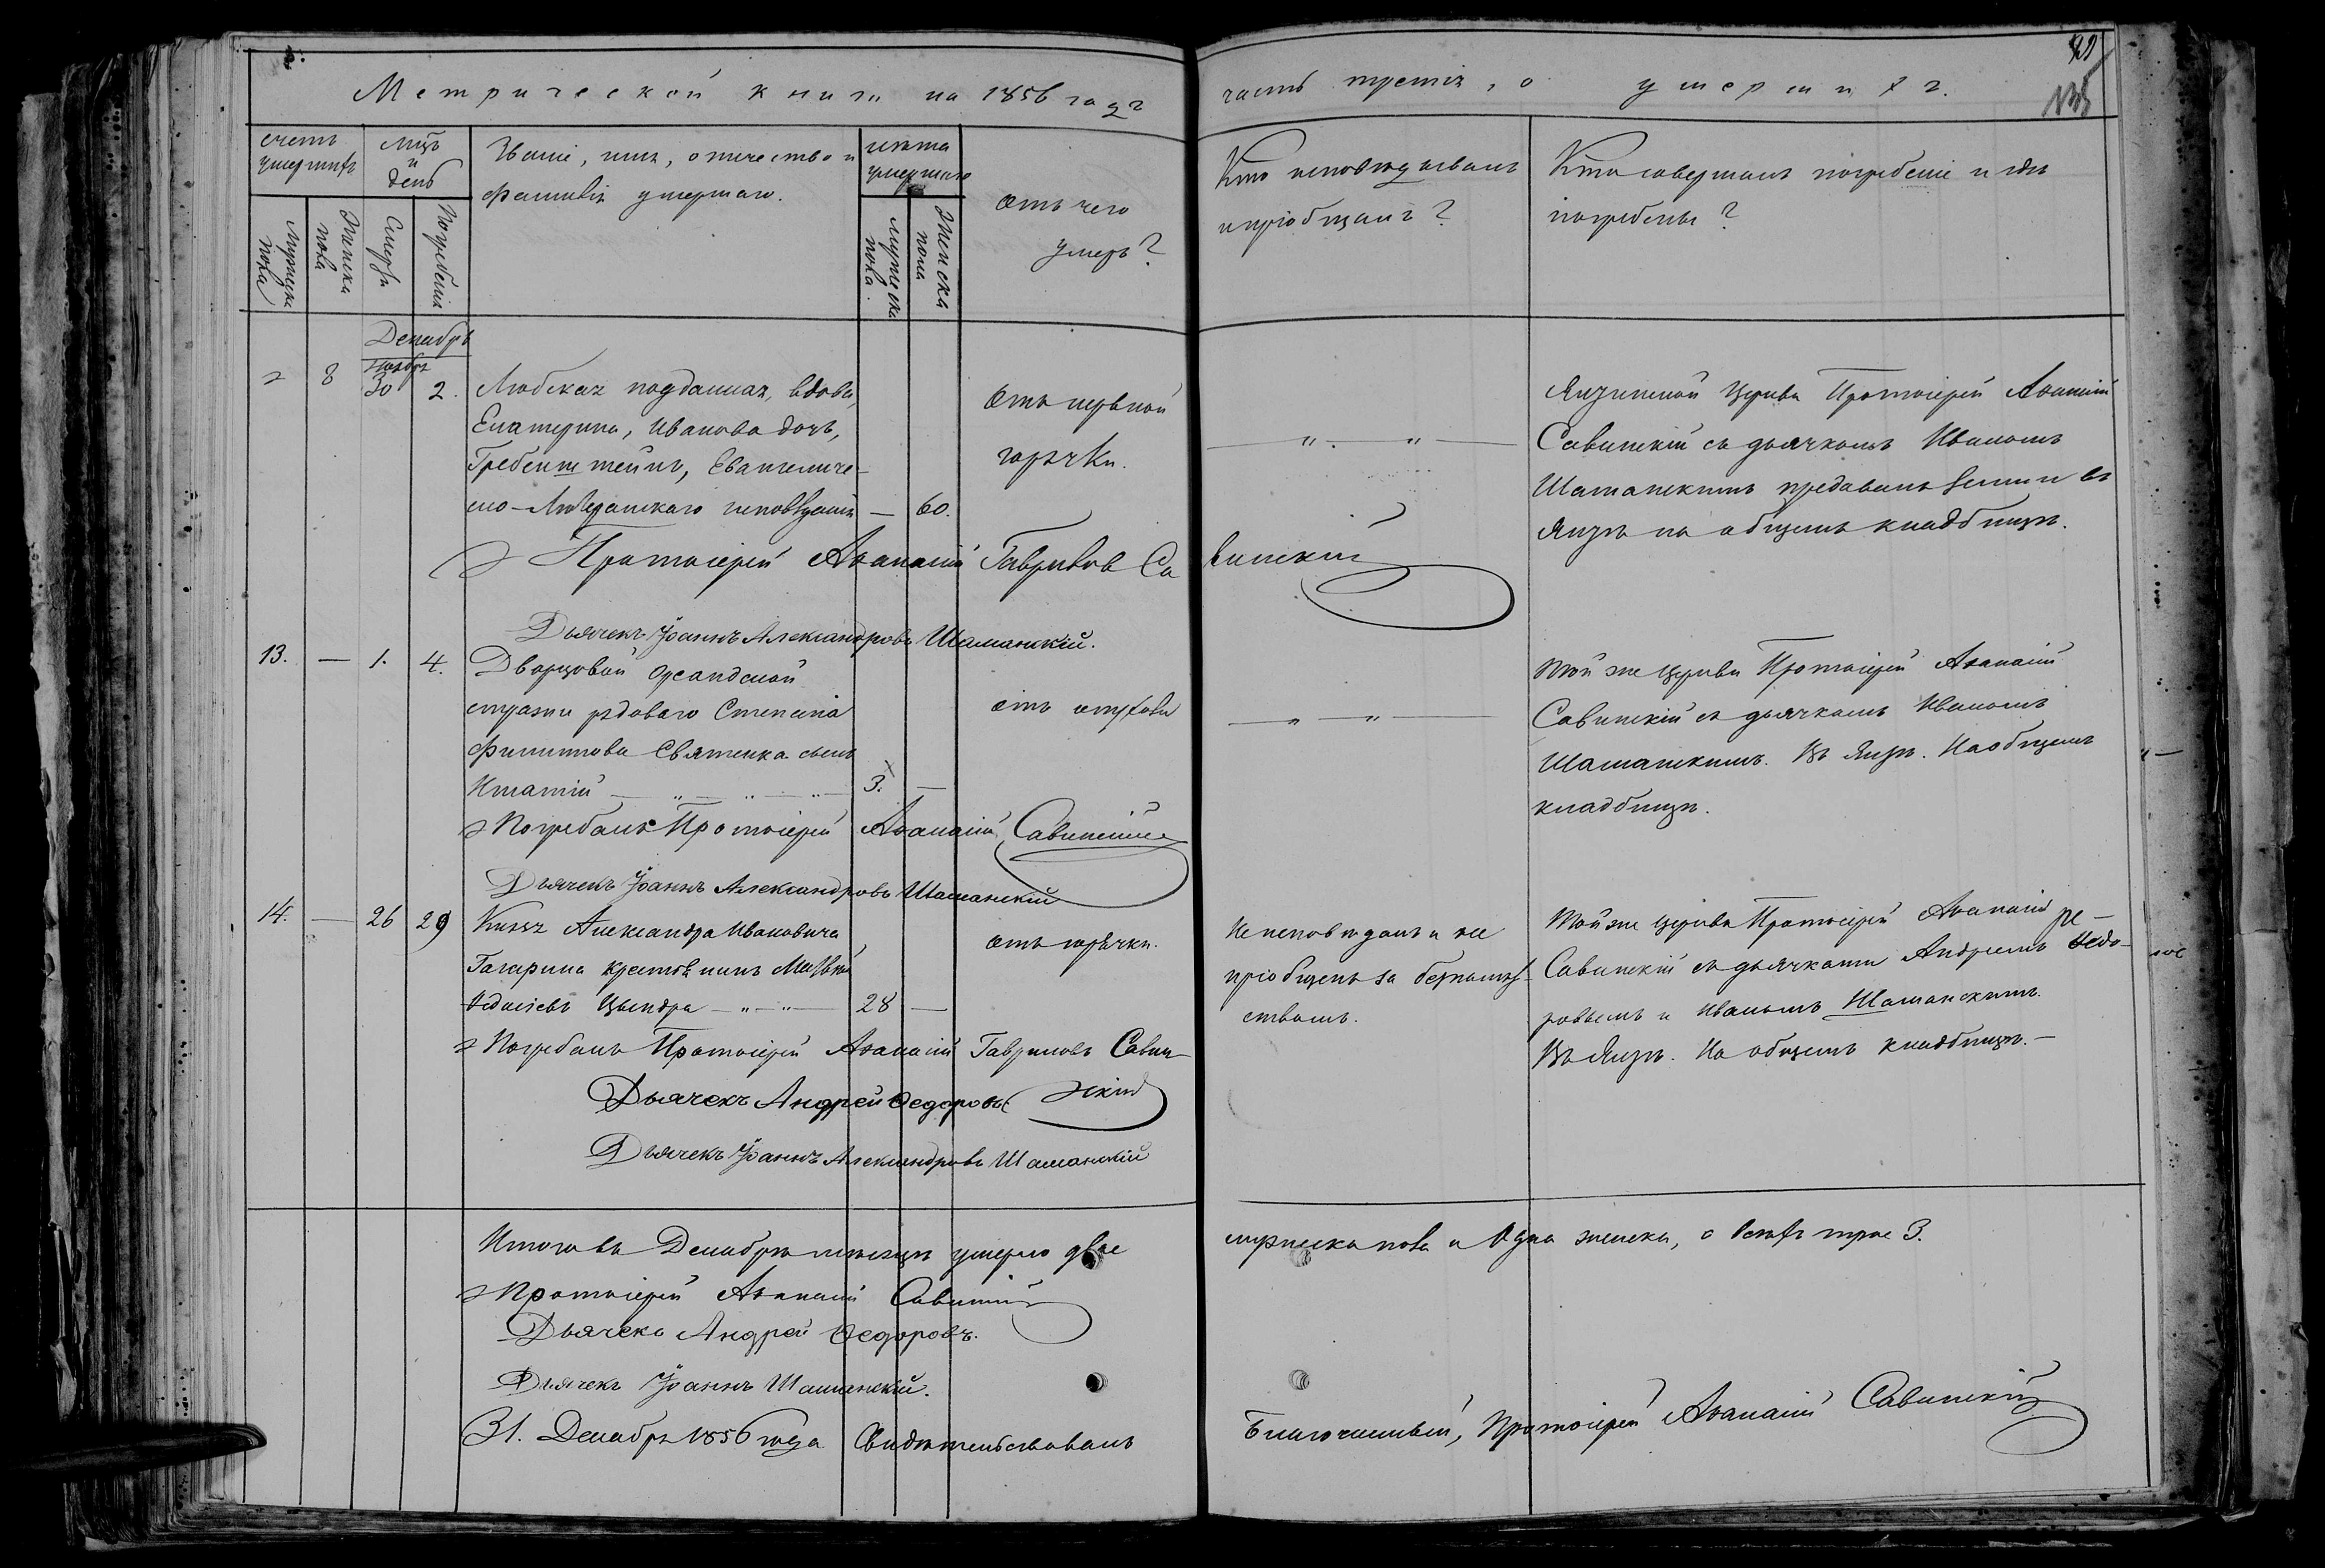 Метрической книги на 1856 годъ часть третія, о умершихъ.
счетъ умершихъ
Мужеска пола
Женска пола
Мцъ и день
Смерти
Погребенія
Званіе, имя, отечество и
фамилія умершаго.
лѣта умершаго
мужеска пола.
Женска пола
Отъ чего
умеръ?
Кто исповѣдывалъ
и пріобщалъ?
Кто совершалъ погребеніе и гдѣ
погребены?
Декабрь
Ноябр
8 30 2. Любская подданная, вдова,
Екатерина, Иванова дочь,
Гребенштейнъ, Евангеличе-
ско-Лютеранскаго исповѣданія — 60.
Отъ нервной
горячки.
— „ . „ —
Ялтинской Церкви Протоіерей Аѳанасій
Савинскій съ дьячкомъ Иваномъ
Шаманскимъ предавалъ земли въ
Ялтѣ на общемъ кладбищѣ.
Протоіерей Аѳанасій Гавриловъ Савинскій
Дьячекъ Іоаннъ Александровъ Шаманскій.
13. — 1. 4. Дворцовой Ореандской
стражи рядоваго Стенсина
Филиппова Святенка сынъ
Игнатій — „ — „ — „ — 3. —
отъ
— „ „ —
Той же Церкви Протоіерей Аѳанасій
Савинскій съ дьячкомъ Иваномъ
Шаманскимъ. Въ Ялтѣ. На общемъ
кладбищѣ.
Погребалъ Протоіерей Аѳанасій Савинскій
Дьячекъ Іоаннъ Александровъ Шаманскій
14. — 26 29 Князя Александра Ивановича
Гагарина крестьянинъ Матвѣй
Ѳедосіевъ Цындра — „ — „ — 28 —
отъ горячки.
Не исповѣданъ и не
пріобщенъ за безпамят-
ствомъ.
Той же Церкви Протоіерей Аѳанасій
Савинскій съ дьячками Андреемъ Ѳедо-
ровымъ и Иваномъ Шаманскимъ.
Въ Ялтѣ. На общемъ кладбищѣ. —
Погребалъ Протоіерей Аѳанасій Гавриловъ Савин-
скій
Дьячекъ Андрей Ѳедоровъ
Дьячекъ Іоаннъ Александровъ Шаманскій
Итого въ Декабрѣ мѣсяцѣ умерло двое мужеска пола и Одна женска, о всѣхъ трое 3.
Протоіерей Аѳанасій Савинскій
Дьячекъ Андрей Ѳедоровъ.
Дьячекъ Іоаннъ Шаманскій.
31. Декабря 1856 года Свидѣтельствовалъ Благочинный, Протоіерей Аѳанасій Савинскій